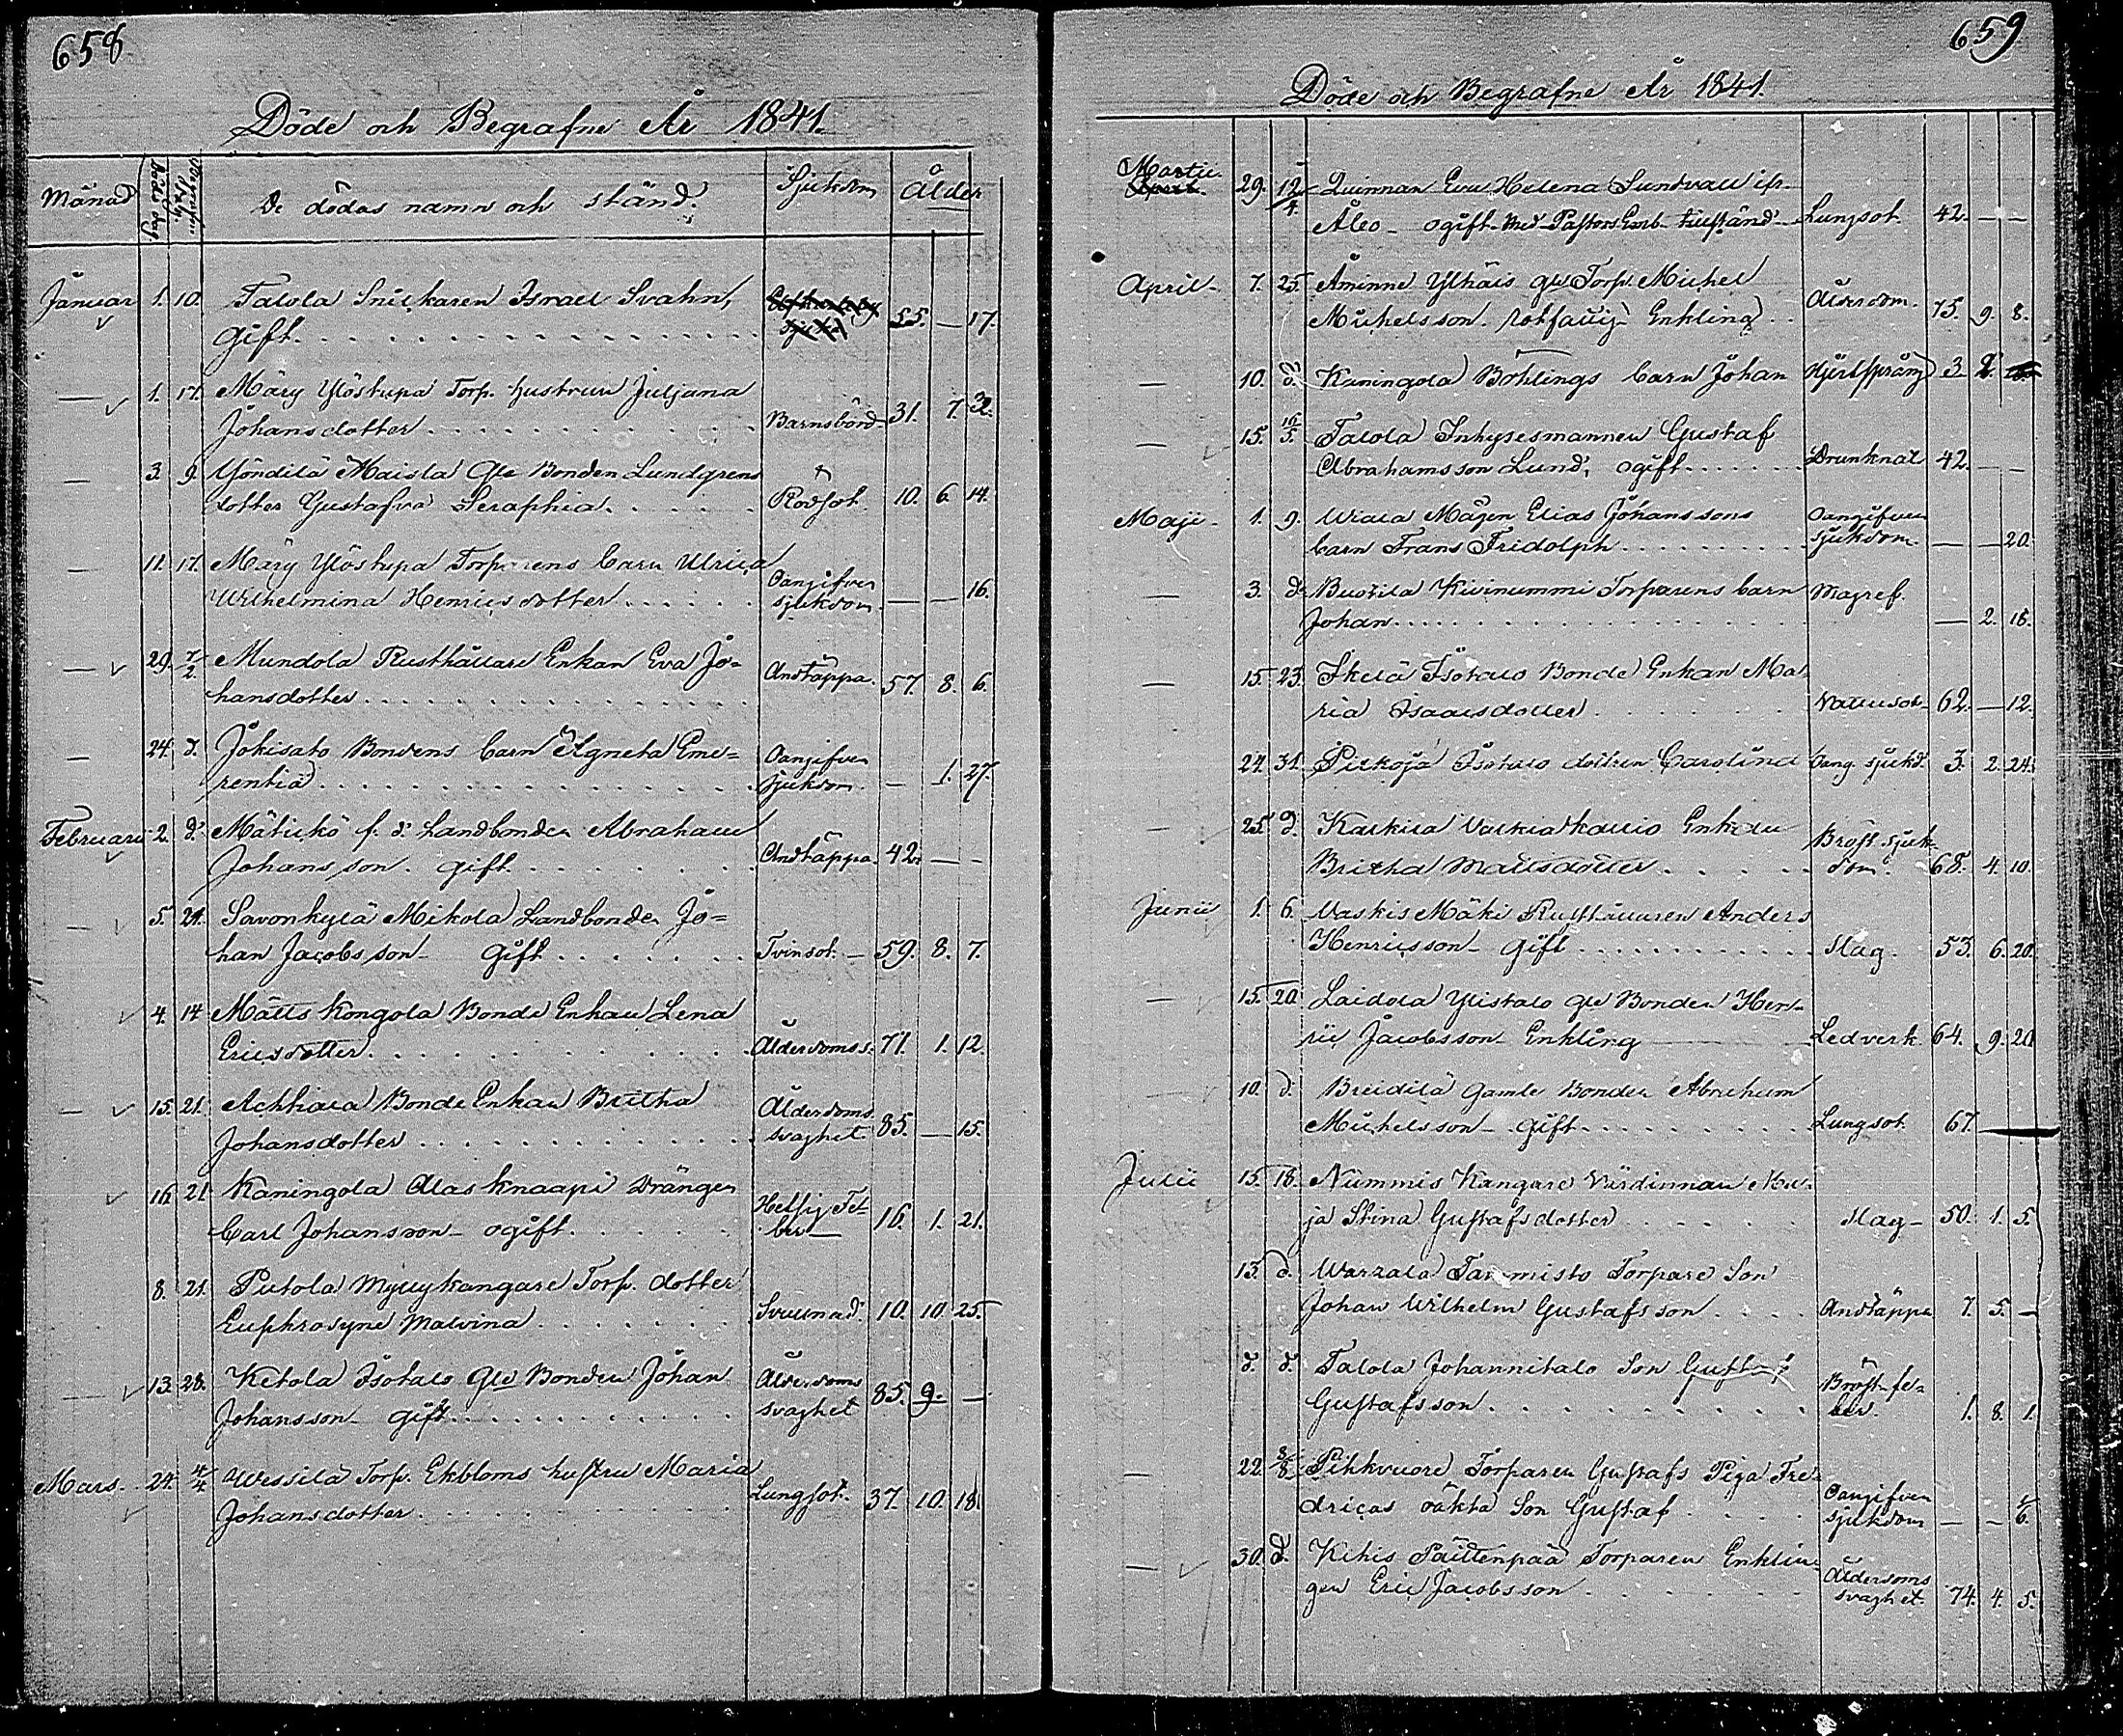 658
Döde och Begrafne År 1841.
Månad Döde dag. Begrafne dag. De dödas namn och stånd. Sjukdom Ålder
Januar 1. 10. Talola Snickaren Israel Svahn,
Gift. 55. — 17.
— 1. 17. Märy Ylöstupa Torp. hustrun Juljana
Johansdotter Barnsbörd 31. 7.
— 3. 9. Yöndilä Maisla Gle Bonden Lundgrens
dotter Gustafva Seraphia. Rodsot. 10. 6. 14.
— 11. 17. Märy Ylöstupa Torparens barn Ulrica
Wilhelmina Henricsdotter Oangifven sjukdom — — 16.
— 29. 7/2. Mundola Rusthållare Enkan Eva Jo=
hansdotter Andtäppa. 57. 8. 6.
— 24. d. Jokisato Bondens barn Agneta Eme=
rentia Oangifven sjukdom — 1. 27.
Februarii 2. d. Mälickö f. d. Landbonden Abraham
Johansson. gift. Andtäppa. 42. — —
— 5. 21. Savonkylä Mikola Landbonden Jo=
han Jacobsson — Gift Tvinsot. — 59. 8. 7.
4. 14 Mätts Kongola Bonde Enkan Lena
Ericsdotter. Ålderdoms s. 71. 1. 12.
— 15. 21. Achkiala Bonde Enkan Britha
Johansdotter Ålderdoms svaghet. 85. — 15.
16. 21. Kaningola Alas Knaapi Drängen
Carl Johansson — ogift. Hetsig Fe= ber — 16. 1. 21.
8. 21. Putola Myllykangare Torp. dotter
Euphrosyne Malvina Svullnad. 10. 10. 25.
— 13. 28. Ketola Isotalo Gle Bonden Johan
Johansson — gift Ålderdoms svaghet 85. 9. —
Mars. 24. 4/4 Wessilä Torp. Ekbloms hustru Maria
Johansdotter Lungsot. 37. 10. 18.
659
Döde och Begrafne År 1841.
Martii 29. 12/4. Quinnan Eva Helena Sundvall
Ålco — ogift. Lungsot. 42. — —
April — 7. 25. Åminne Ylhäis gle Torp. Michel
Michelsson. Enkling. Ålderdom. 75. 9. 8.
— 10. d. Kaningola Böhlings barn Johan Hjertsprång 3.
— 15. 16/5. Talola Inhysesmannen Gustaf
Abrahamsson Lund, ogift. Drunknat 42. — —
Maji — 1. 9. Wiala Mågen Elias Johanssons
barn Frans Fridolph Oangifven sjukdom — — 20.
— 3. d. Bussila Kivinummi Torparens barn
Johan Magref. — 2. 16.
— 15. 23. Skelä Isotalo Bonde Enkan Ma-
ria Isaacsdotter Vattusot — 62. — 12.
24. 31. Pickojä Isotalo dottren Carolina Oang. sjukd. 3. 2. 24.
25. d. Karkila Enkan
Britha Mattsdotter Bröst sjuk- dom. 68. 4. 10.
Junii 1. 6. Vaskis Mäki Rusthållaren Anders
Henricsson — gift Slag. 53. 6. 20.
— 15. 20. Laidola Ylistalo gle Bonden Hen-
ric Jacobsson Enkling — Ledverk 64. 9. 20
10. d. Breidilä Gamle Bonden Abraham
Michelsson — Gift. Lungsot. 67. —
Julii 15. 18. Nummis Kangare Värdinnan Ma-
ja Stina Gustafsdotter Slag — 50. 1. 5.
13. d. Warzala Tammisto Torpare Son
Johan Wilhelm Gustafsson Andtäppa 7. 5. —
d. d. Talola Johannitalo Son Gustaf
Gustafsson. Bröst-fe- ber. 1. 8. 1.
— 22. 8/8. Pihkvuore Torparen Gustafs Piga Fre-
dricas oäkta Son Gustaf Oangifven sjukdom — — 6.
— 30. d. Kihis Päittenpää Torparen Enklin-
gen Eric Jacobsson Ålderdoms svaghet. 74. 4. 5.